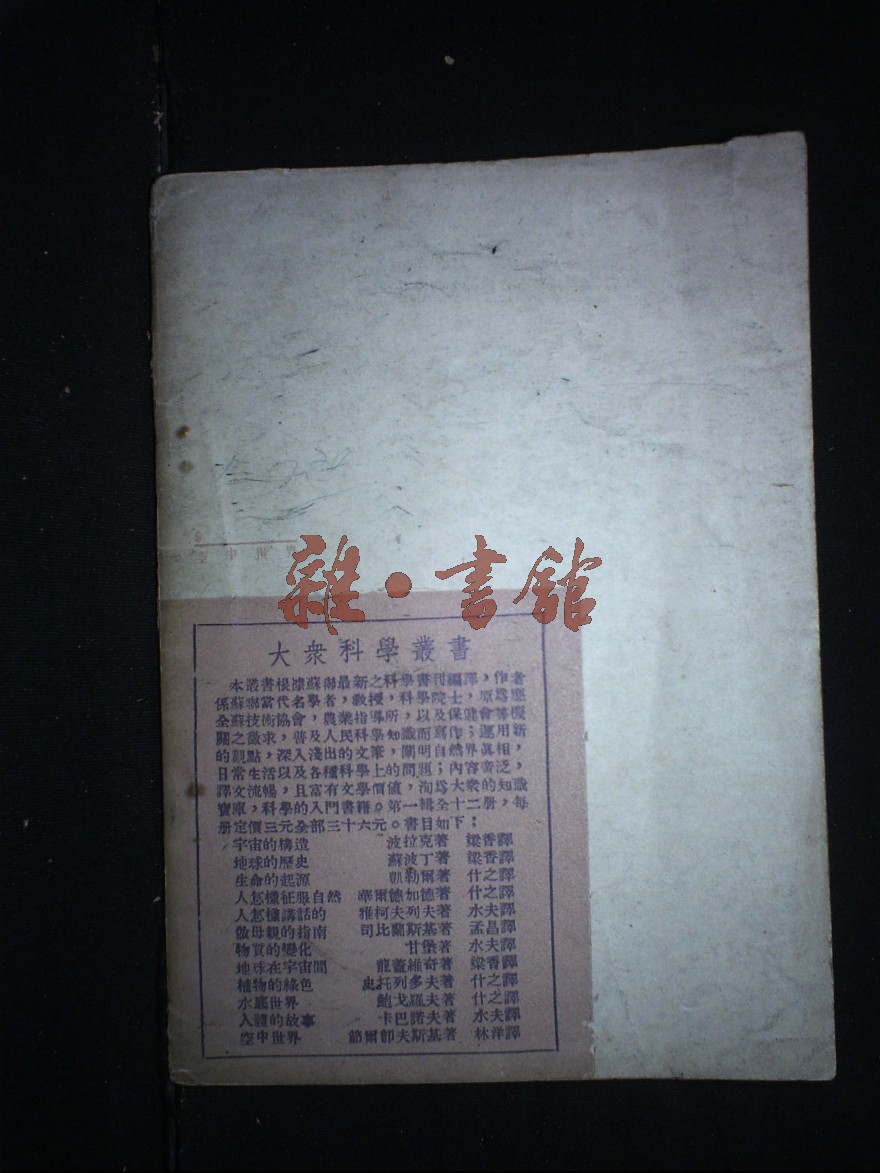 空中世界
雜·書館
大衆科學叢書
本叢書根據蘇聯最新之科學書刊編譯,作者
係蘇聯當代名學者,教授,科學院士,原爲應
全蘇技術協會,農業指導所,以及保健會等機
關之徵求,普及人民科學知識而寫作;運用新
的觀點,深入淺出的文筆,闡明自然界眞相,
日常生活以及各種科學上的問題;內容廣泛,
譯文流暢,且富有文學價値,洵爲大衆的知識
寶庫,科學的入門書籍。第一輯全十二册,每
册定價三元全部三十六元。書目如下:
宇宙的構造 波拉克著 梁香譯
地球的歷史 蘇波丁著 梁香譯
生命的起源 凱勒爾著 什之譯
人怎樣征服自然 華爾德加德著 什之譯
人怎樣講話的 雅柯夫列夫著 水夫譯
做母親的指南 司比蘭斯基著 孟昌譯
物質的變化 甘堡著 水夫譯
地球在宇宙間 龍蓋維奇著 梁香譯
植物的綠色 史托列多夫著 什之譯
水底世界 鮑戈羅夫著 什之譯
人體的故事 卡巴諾夫著 水夫譯
空中世界 節爾卽夫斯基著 林洋譯